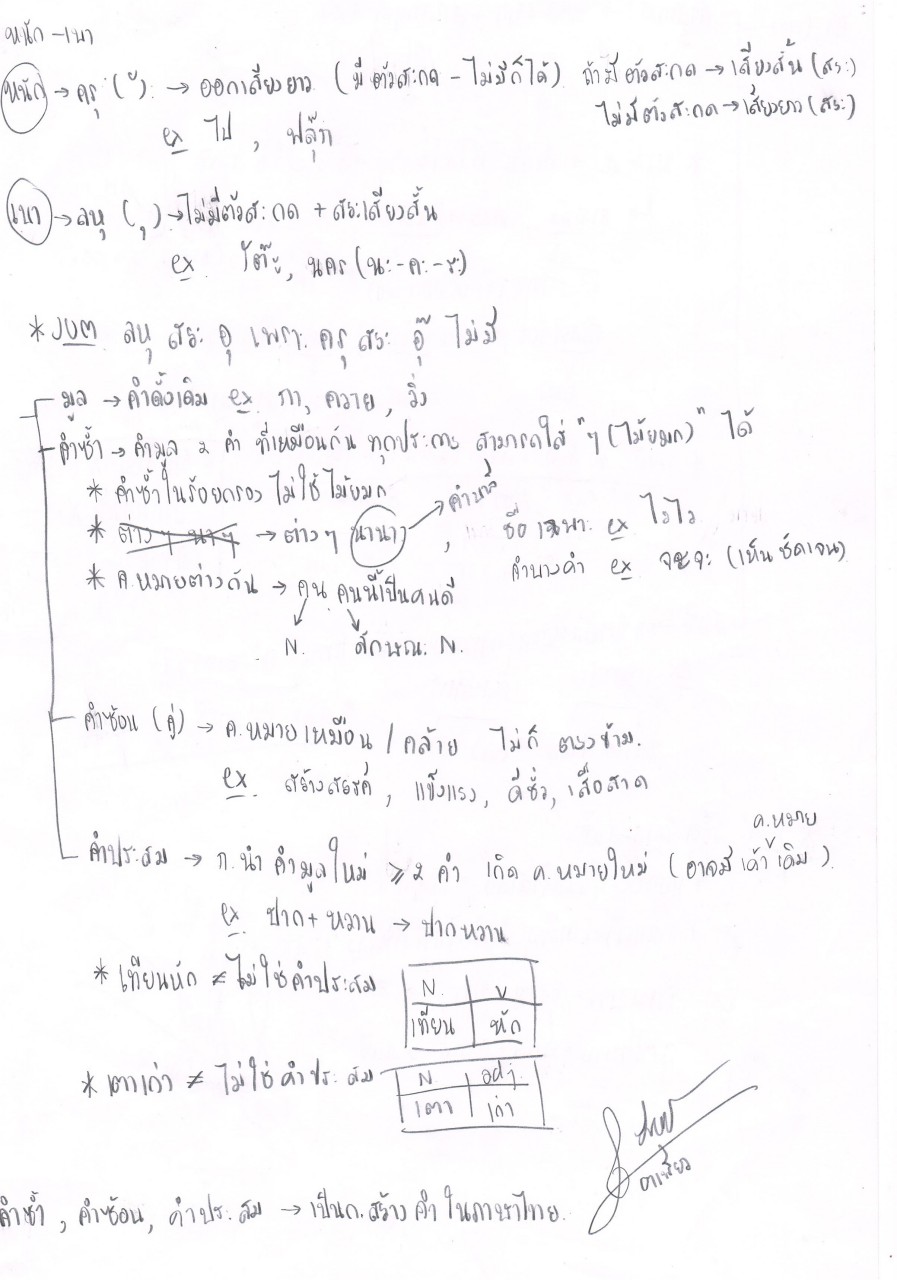 หนัก - เบา
หนัก → ครุ ( ั) → ออกเสียงยาว (มี ตัวสะกด - ไม่มีก็ได้) ถ้ามี ตัวสะกด → เสียงสั้น (สระ)
ไม่มีตัวสะกด → เสียงยาว (สระ)
ex ไป , ฟลุ๊ก
เบา → ลหุ ( ุ) → ไม่มีตัวสะกด + สระเสียงสั้น
ex โต๊ะ, นคร (นะ-คะ-ระ)
* ลหุ สระ อุ เพราะ ครุ สระ อุ๊ ไม่มี
มูล → คำดั้งเดิม ex กา, ควาย, วิ่ง
คำซ้ำ → คำมูล 2 คำ ที่เหมือนกัน ทุกประการ สามารถใส่ "ๆ (ไม้ยมก)" ได้
* คำซ้ำในร้อยกรอง ไม่ใช้ไม้ยมก
* ต่างๆ นาๆ → ต่างๆ นานา → คำบาลี , ชื่อเฉพาะ ex ไวไว
คำบางคำ ex จะจะ (เห็นชัดเจน)
* ค.หมายต่างกัน → คน คนนี้เป็นคนดี
N. ลักษณะ N.
คำซ้อน (คู่) → ค.หมายเหมือน / คล้าย ไม่ก็ ตรงข้าม.
ex สร้างสรรค์, แข็งแรง, ดีชั่ว, เสื่อสาด
ค.หมาย
คำประสม → ก.นำ คำมูลใหม่ ≥ 2 คำ เกิด ค.หมายใหม่ (อาจมีเค้าเดิม).
ex ปาก + หวาน → ปากหวาน
* เทียนหัก ≠ ไม่ใช่คำประสม
N. V
เทียน หัก
* เตาเก่า ≠ ไม่ใช่คำประสม
N
เตา เก่า
คำซ้ำ, คำซ้อน, คำประสม → เป็นก.สร้างคำในภาษาไทย.